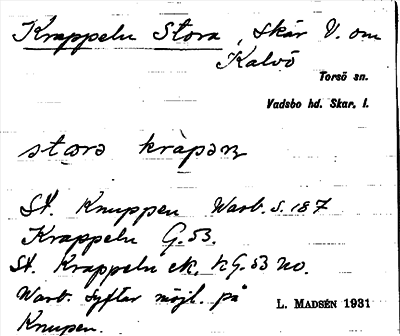 Krappeln Stora, skär V. om
Kalvö
Torsö sn.
Vadsbo hd. Skar. l.
stora kràpən
St. Knuppen Warb. s. 187
Krappeln G. 53.
St. Krappeln ek. kG. 53 no.
Warb. syftar möjl. på
Knupen.
L. MADSÉN 1931